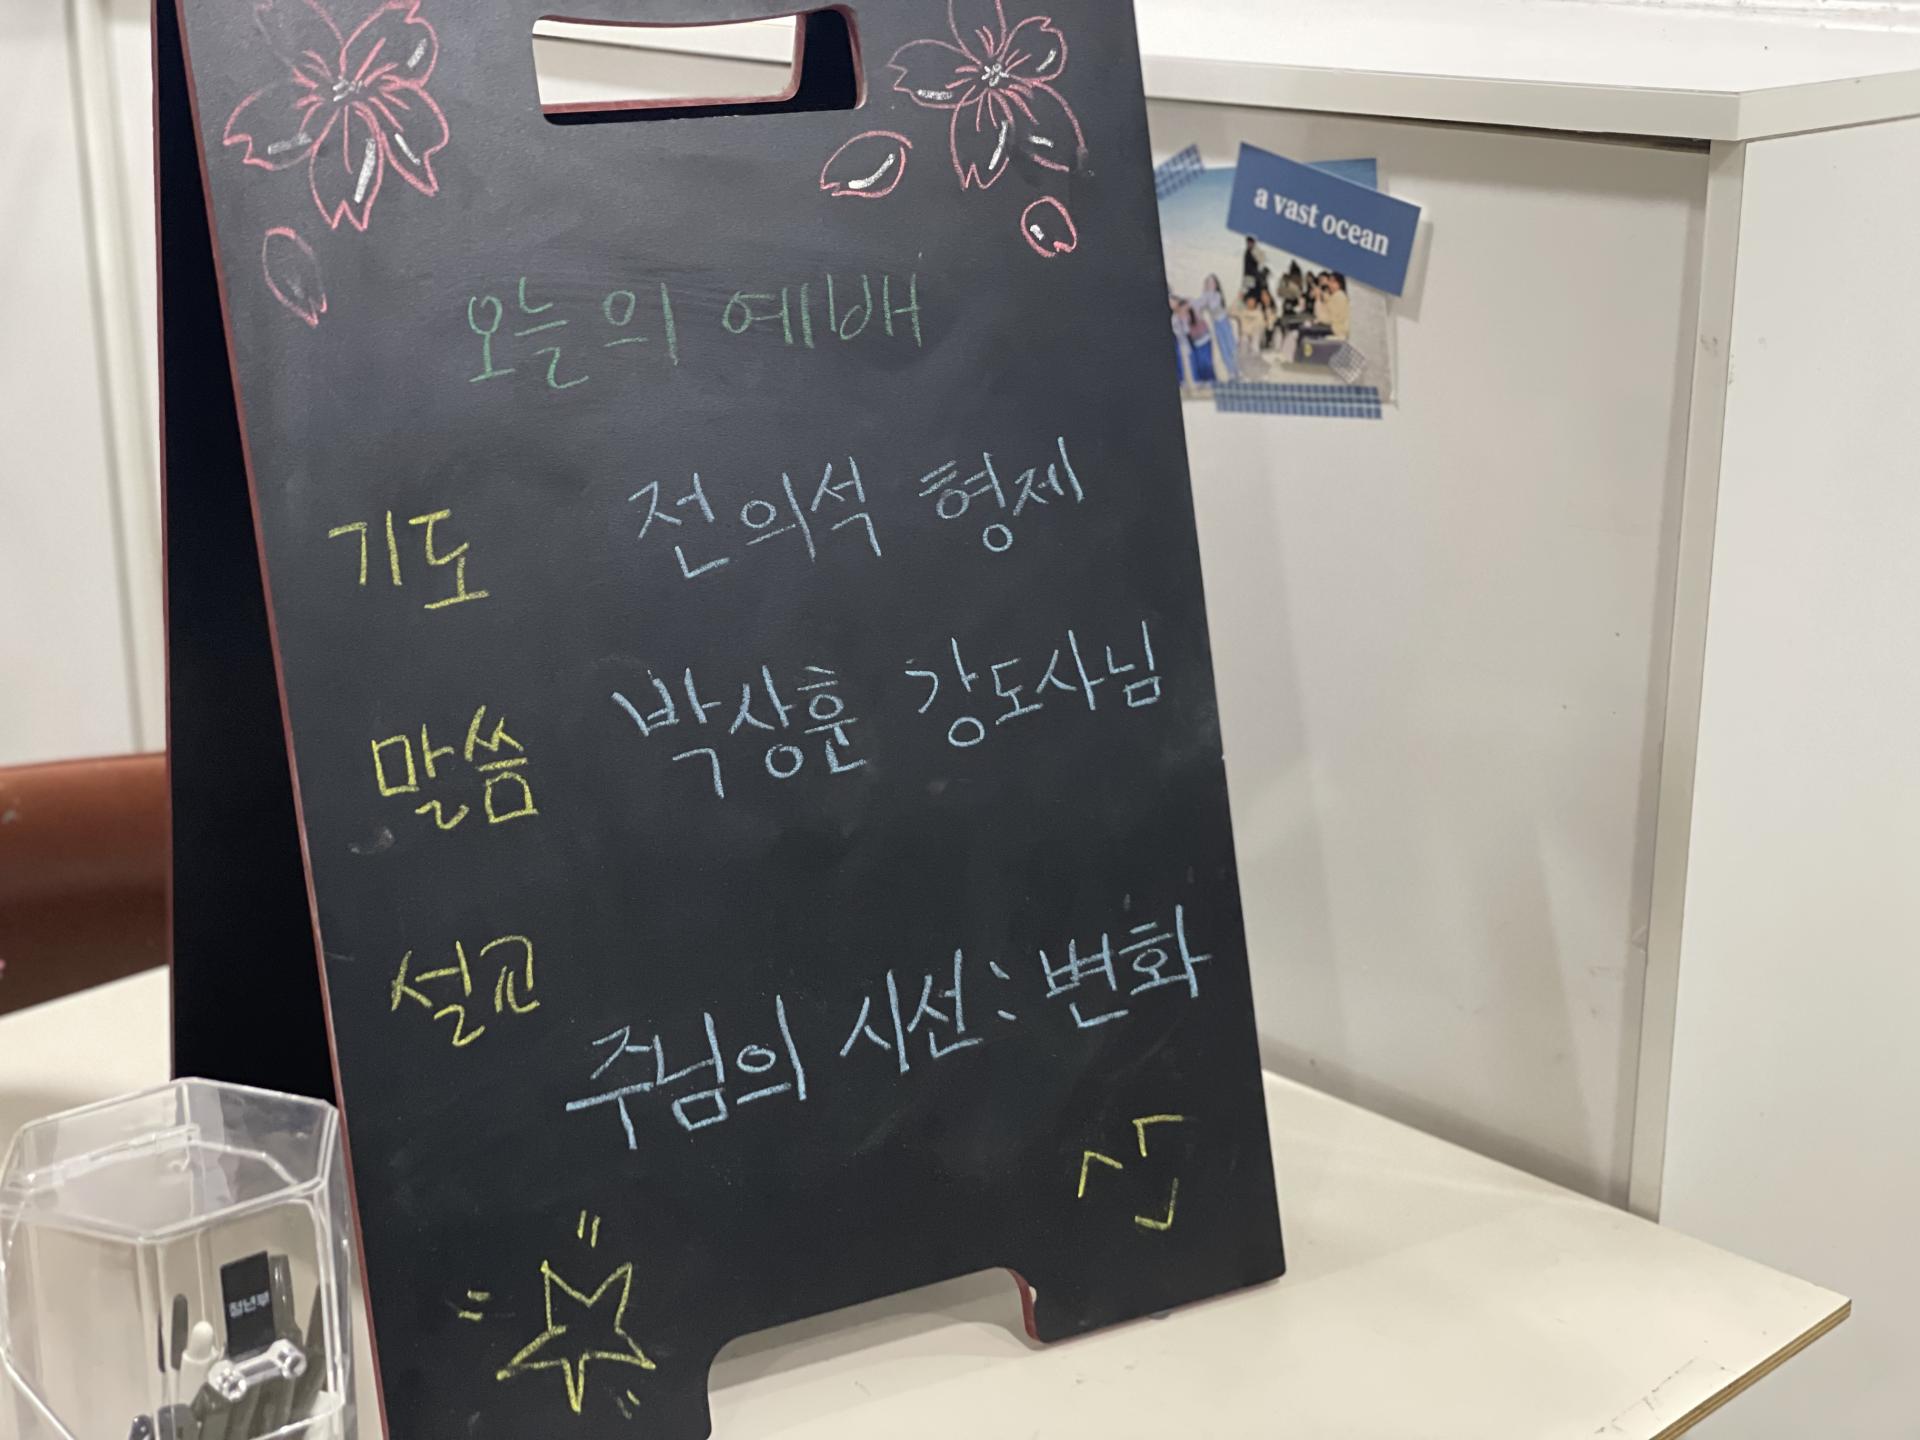 a vast ocean
오늘의 예배
기도 전의석 형제
말씀 박상훈 강도사님
설교 주님의 시선: 변화
청년부